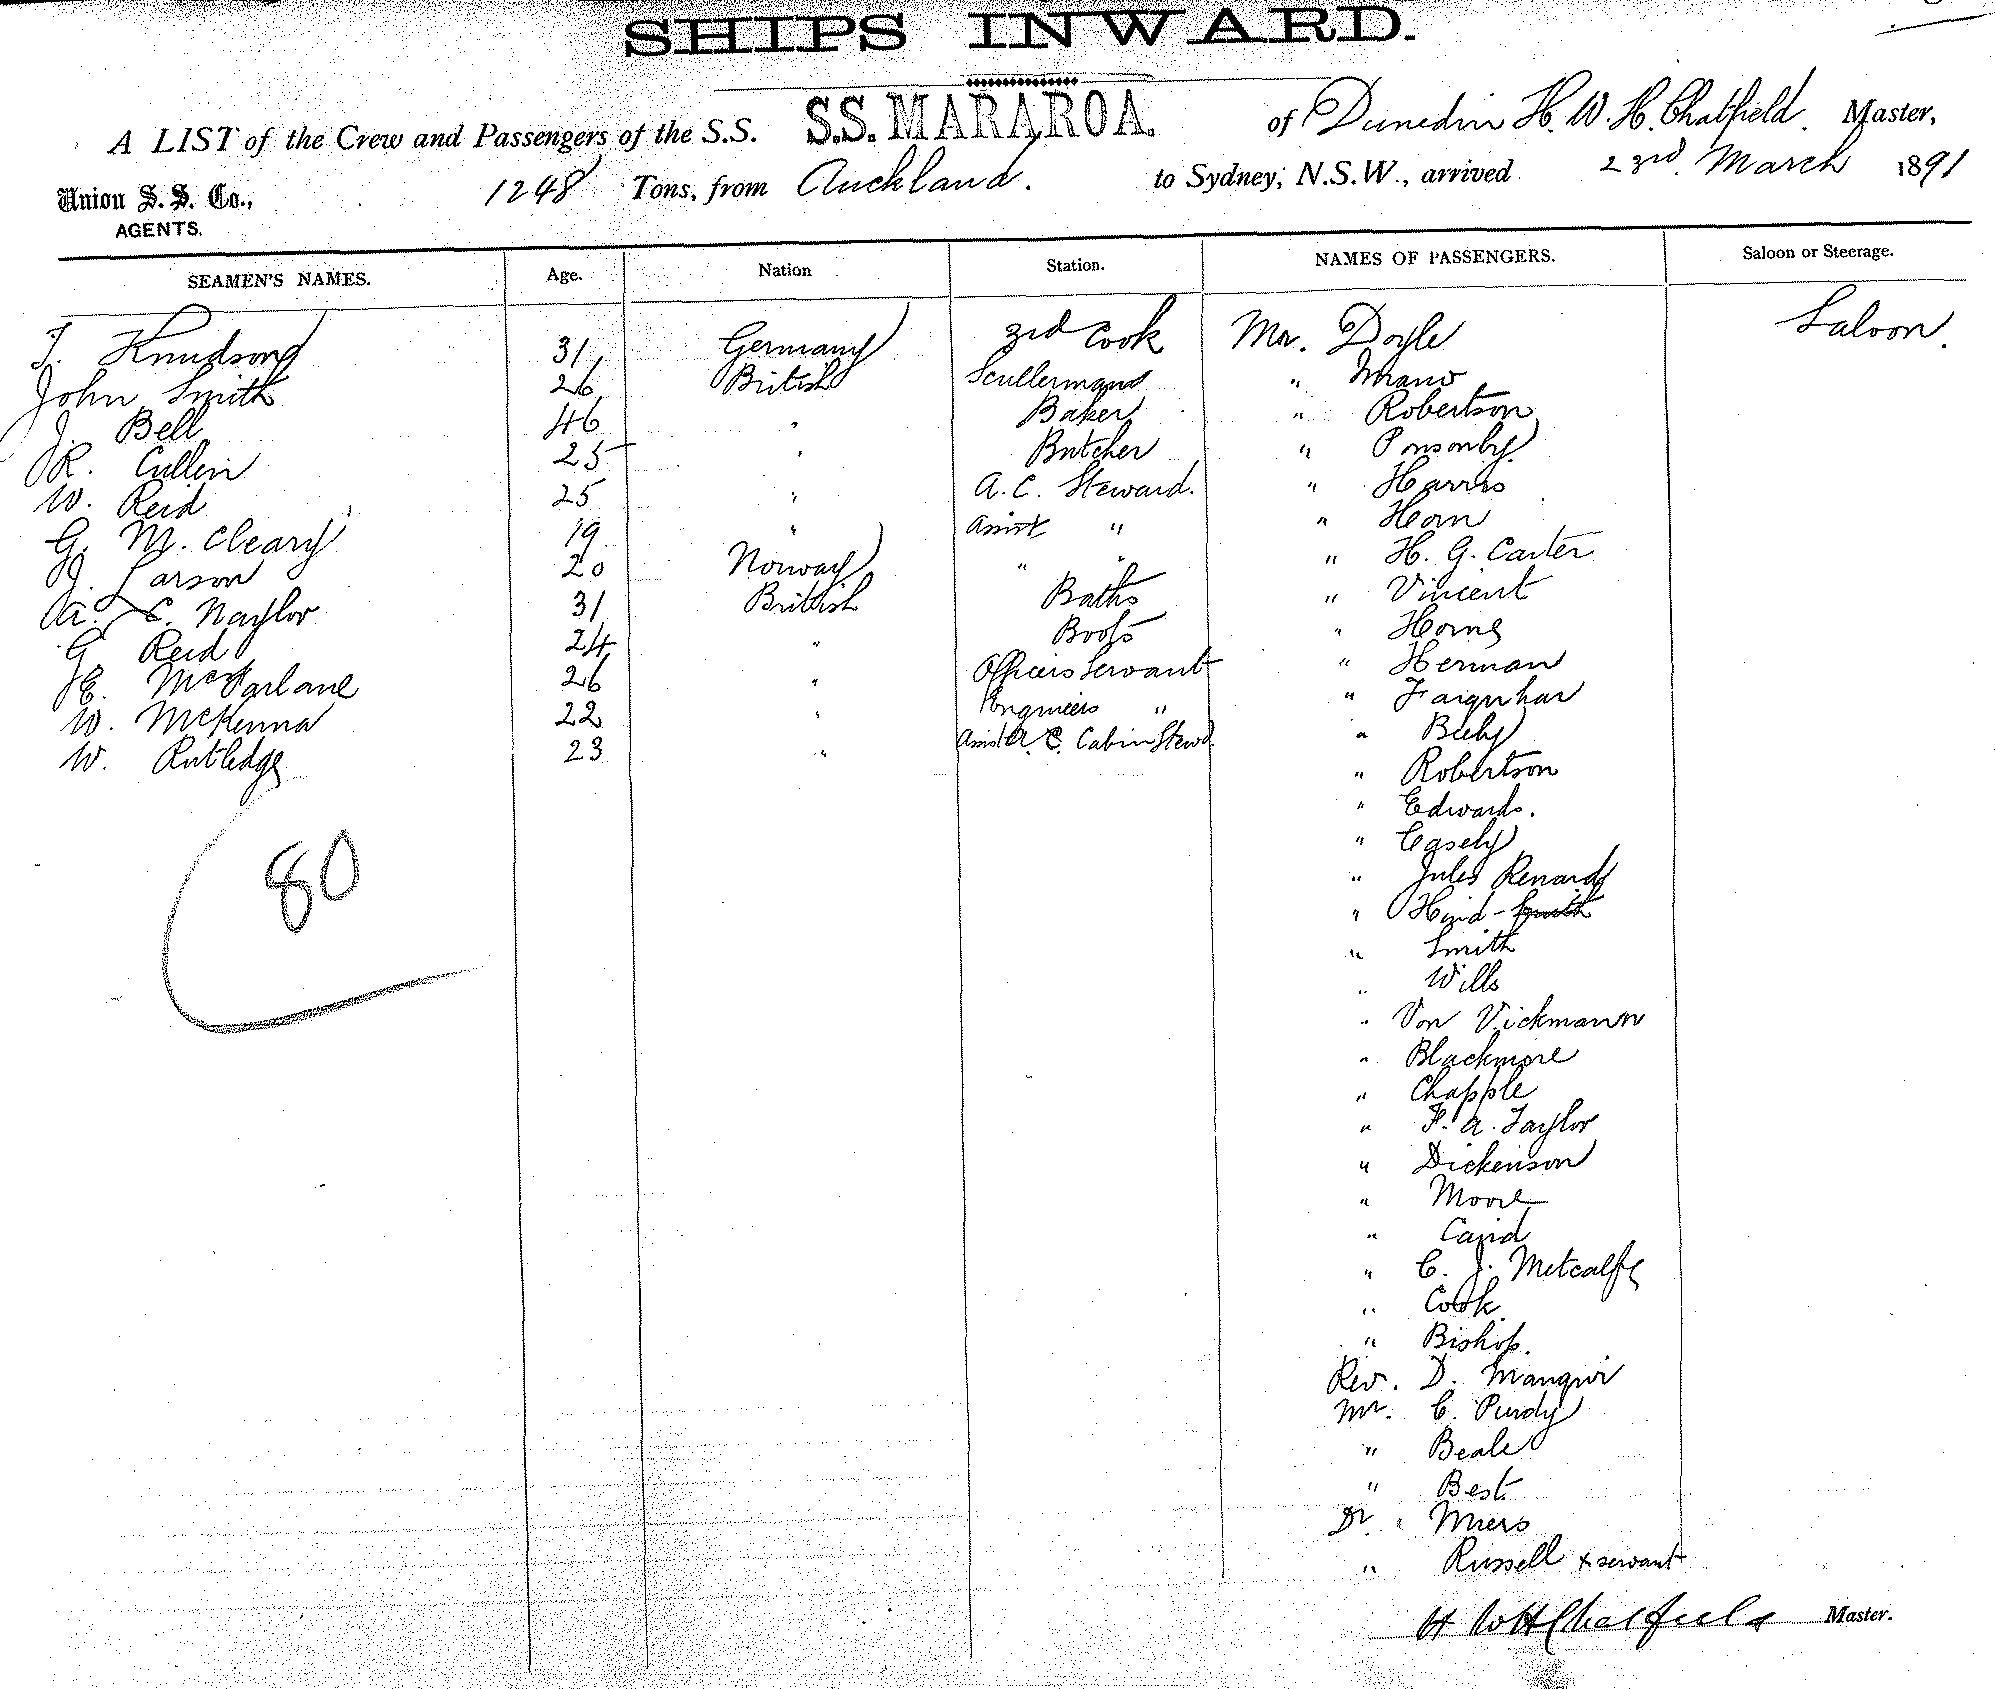 SHIPS INWARD.
A LIST of the Crew and Passengers of the S.S. S.S. MARAROA. of Dunedin H. W. H. Chatfield. Master,
Union S. S. Co., 1248 Tons, from Auckland. to Sydney, N.S.W., arrived 23rd March 1891
AGENTS.
SEAMEN'S NAMES. Age. Nation Station. NAMES OF PASSENGERS. Saloon or Steerage.
J. Knudson 31 Germany 3rd Cook Mr. Doyle Saloon.
John Smith 26 British Scullerman "
J. Bell 46 " Baker " Robertson
R. Cullen 25 " Butcher " Ponsonby
W. Reid 25 " A. C. Steward. " Harris
G. M. Cleary 19 " Assist " " Horn
J. Larson 20 Norway " " " H. G. Carter
A. C. Naylor 31 British Baths " Vincent
G Reid 24 " Boots " Horne
E. McFarlane 26 " Officers Servant " Herman
W. McKenna 22 " Engineers " " Farquhar
W. Rutledge 23 " Assist A. C. Cabin Stewd. " Beeby
" Robertson
" Edwards.
" Casely
" Jules Renard
80 " Hind - Smith
" Smith
" Wills
" Von Vickmann
" Blackmore
" Chapple
" F. A. Taylor
" Dickenson
" Moore
" Caird
" C. J. Metcalfe
" Cook
" Bishop.
Rev. D.
Mr. C. Purdy
" Beale
" Best
Dr. " Miers
" Russell & servant
H W H Chatfield Master.